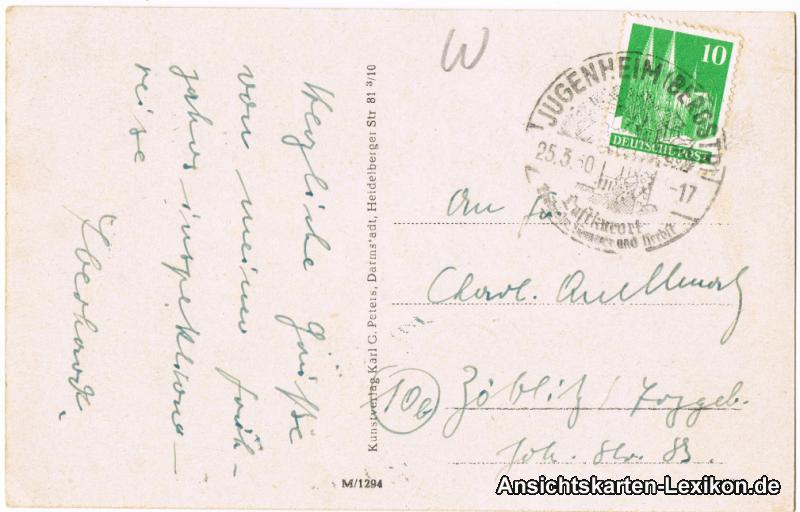 Herzliche Grüße
von meiner Früh-
jahrsinspektions-
reise
Eberhard.
Kunstverlag Karl C. Peters, Darmstadt, Heidelberger Str 81 3/10
M/1294
W
10
DEUTSCHE POST
JUGENHEIM (BERGSTR)
25.3.50
-17
Luftkurort
Sommer und Herbst
An
Charl.
10b
Zöblitz / Erzgeb.
Joh. Str. 83.
Ansichtskarten-Lexikon.de